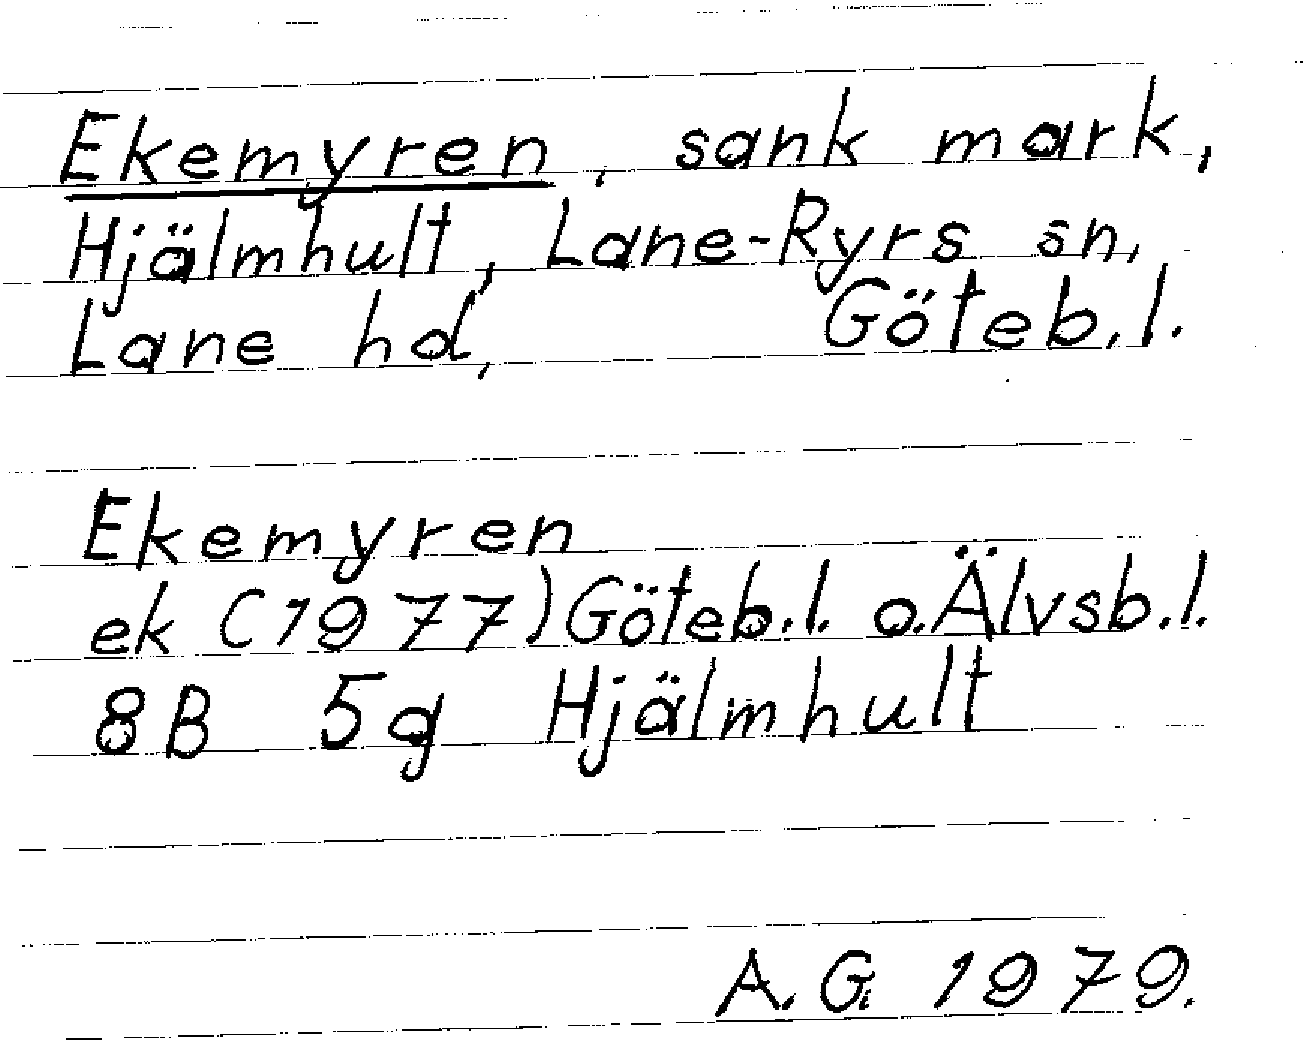 Ekemyren, sank mark,
Hjälmhult, Lane-Ryrs sn,
Lane hd, Göteb.l.
Ekemyren
ek (1977) Göteb.l. o. Älvsb.l.
8B 5g Hjälmhult
A.G. 1979.